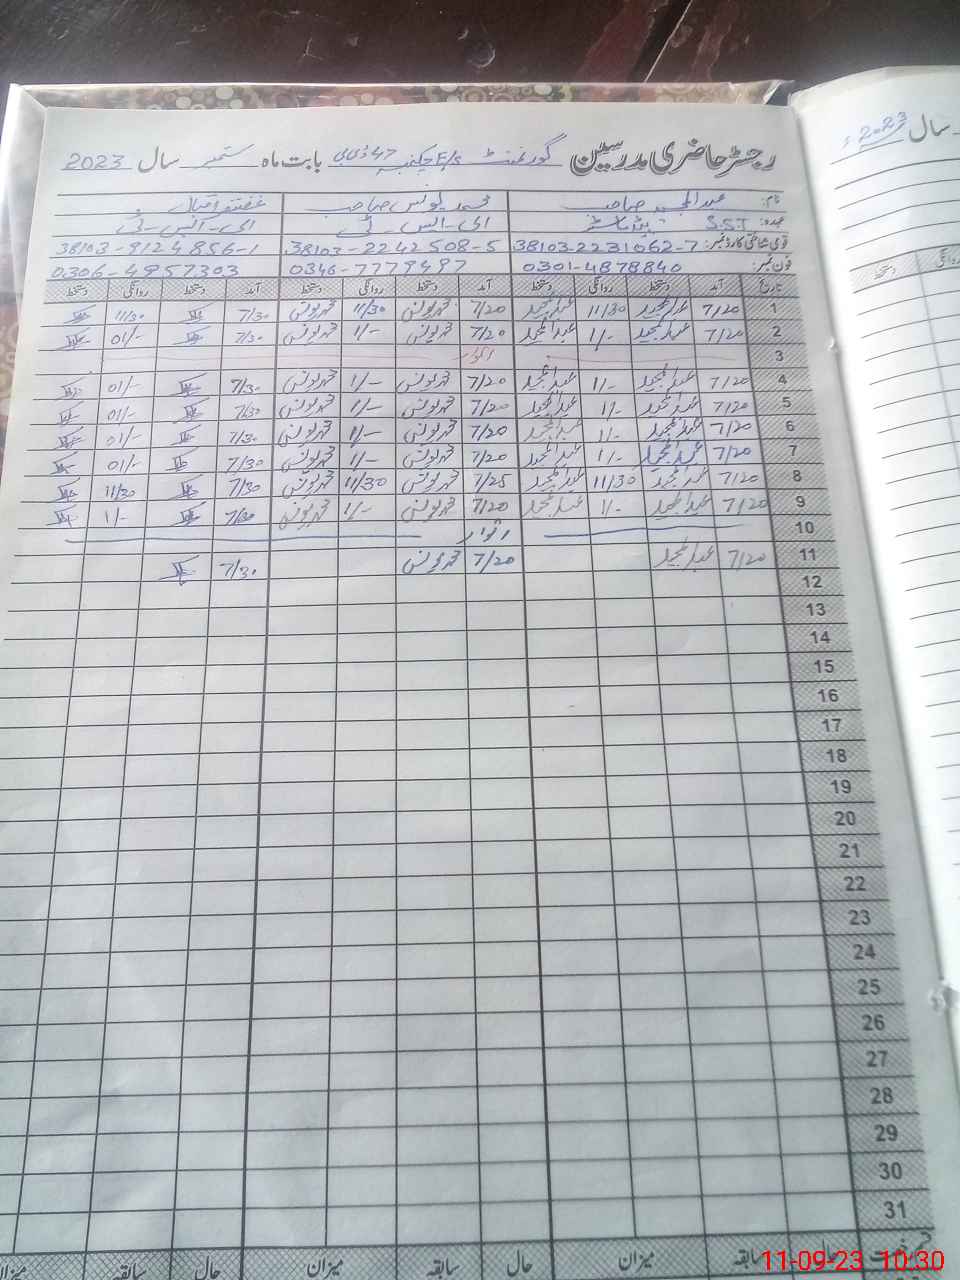 رجسٹر حاضری مدرسین گورنمنٹ E/S چک نمبر 47 ڈی بی بابت ماہ ستمبر سال 2023
سال 2023ء
نام: عبدالمجید صاحب محمد یونس صاحب غضنفر اقبال
عہدہ: S.S.T ہیڈ ماسٹر ای-ایس-ٹی ای-ایس-ٹی
قومی شناختی کارڈ نمبر: 38103-2231062-7 38103-2242508-5 38103-9124856-1
فون نمبر: 0301-4878840 0346-7779497 0306-4957303
تاریخ آمد دستخط روانگی دستخط آمد دستخط روانگی دستخط آمد دستخط روانگی دستخط
1 7/20 عبدالمجید 11/30 عبدالمجید 7/20 محمد یونس 11/30 محمد یونس 7/30 11/30
2 7/20 عبدالمجید 1/- عبدالمجید 7/20 محمد یونس 1/- محمد یونس 7/30 01/-
3 اتوار
4 7/20 عبدالمجید 1/- عبدالمجید 7/20 محمد یونس 1/- محمد یونس 7/30 01/-
5 7/20 عبدالمجید 1/- عبدالمجید 7/20 محمد یونس 1/- محمد یونس 7/30 01/-
6 7/20 عبدالمجید 1/- عبدالمجید 7/20 محمد یونس 1/- محمد یونس 7/30 01/-
7 7/20 عبدالمجید 1/- عبدالمجید 7/20 محمد یونس 1/- محمد یونس 7/30 01/-
8 7/20 عبدالمجید 11/30 عبدالمجید 7/25 محمد یونس 11/30 محمد یونس 7/30 11/30
9 7/20 عبدالمجید 1/- عبدالمجید 7/20 محمد یونس 1/- محمد یونس 7/30 1/-
10 اتوار
11 7/20 عبدالمجید 7/20 محمد یونس 7/30
12
13
14
15
16
17
18
19
20
21
22
23
24
25
26
27
28
29
30
31
حال سابقہ میزان حال سابقہ میزان حال سابقہ میزان
11-09-23 10:30